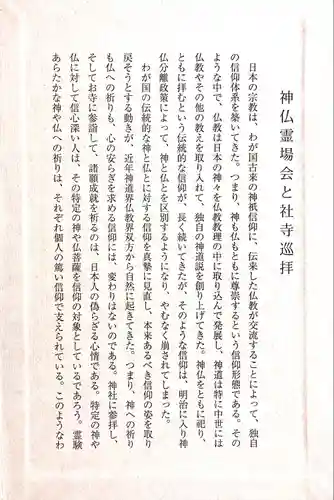 神仏霊場会と社寺巡拝
日本の宗教は、わが国古来の神祇信仰に、伝来した仏教が交流することによって、独自
の信仰体系を築いてきた。つまり、神も仏もともに尊崇するという信仰形態である。その
ような中で、仏教は日本の神々を仏教教理の中に取り込んで発展し、神道は特に中世には
仏教やその他の教えを取り入れて、独自の神道説を創り上げてきた。神仏をともに祀り、
ともに拝むという伝統的な信仰が、長く続いてきたが、そのような信仰は、明治に入り神
仏分離政策によって、神と仏とを区別するようになり、やむなく崩されてしまった。
わが国の伝統的な神と仏とに対する信仰を真摯に見直し、本来あるべき信仰の姿を取り
戻そうとする動きが、近年神道界仏教界双方から自然に起きてきた。つまり、神への祈り
も仏への祈りも、心の安らぎを求める信仰には、変わりはないのである。神社に参拝し、
そしてお寺に参詣して、諸願成就を祈るのは、日本人の偽らざる心情である。特定の神や
仏に対して信心深い人は、その特定の神や仏菩薩を信仰の対象としているであろう。霊験
あらたかな神や仏への祈りは、それぞれ個人の篤い信仰で支えられている。このようなわ